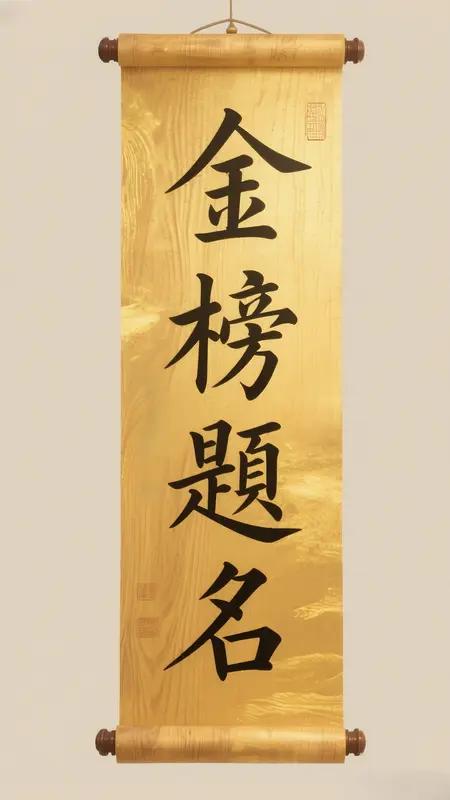 金榜題名